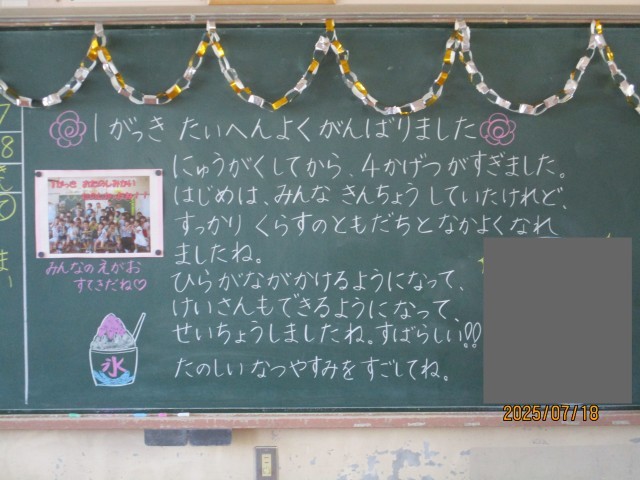 1がっき たいへんよくがんばりました
にゅうがくしてから、4かげつがすぎました。
はじめは、みんな きんちょうしていたけれど、
すっかり くらすのともだちとなかよくなれ
ましたね。
ひらがながかけるようになって、
けいさんもできるようになって、
せいちょうしましたね。すばらしい!!
たのしい なつやすみを すごしてね。
1がっき おたのしみかい
みんなのえがお
すてきだね♡
氷
7
8
2025/07/18